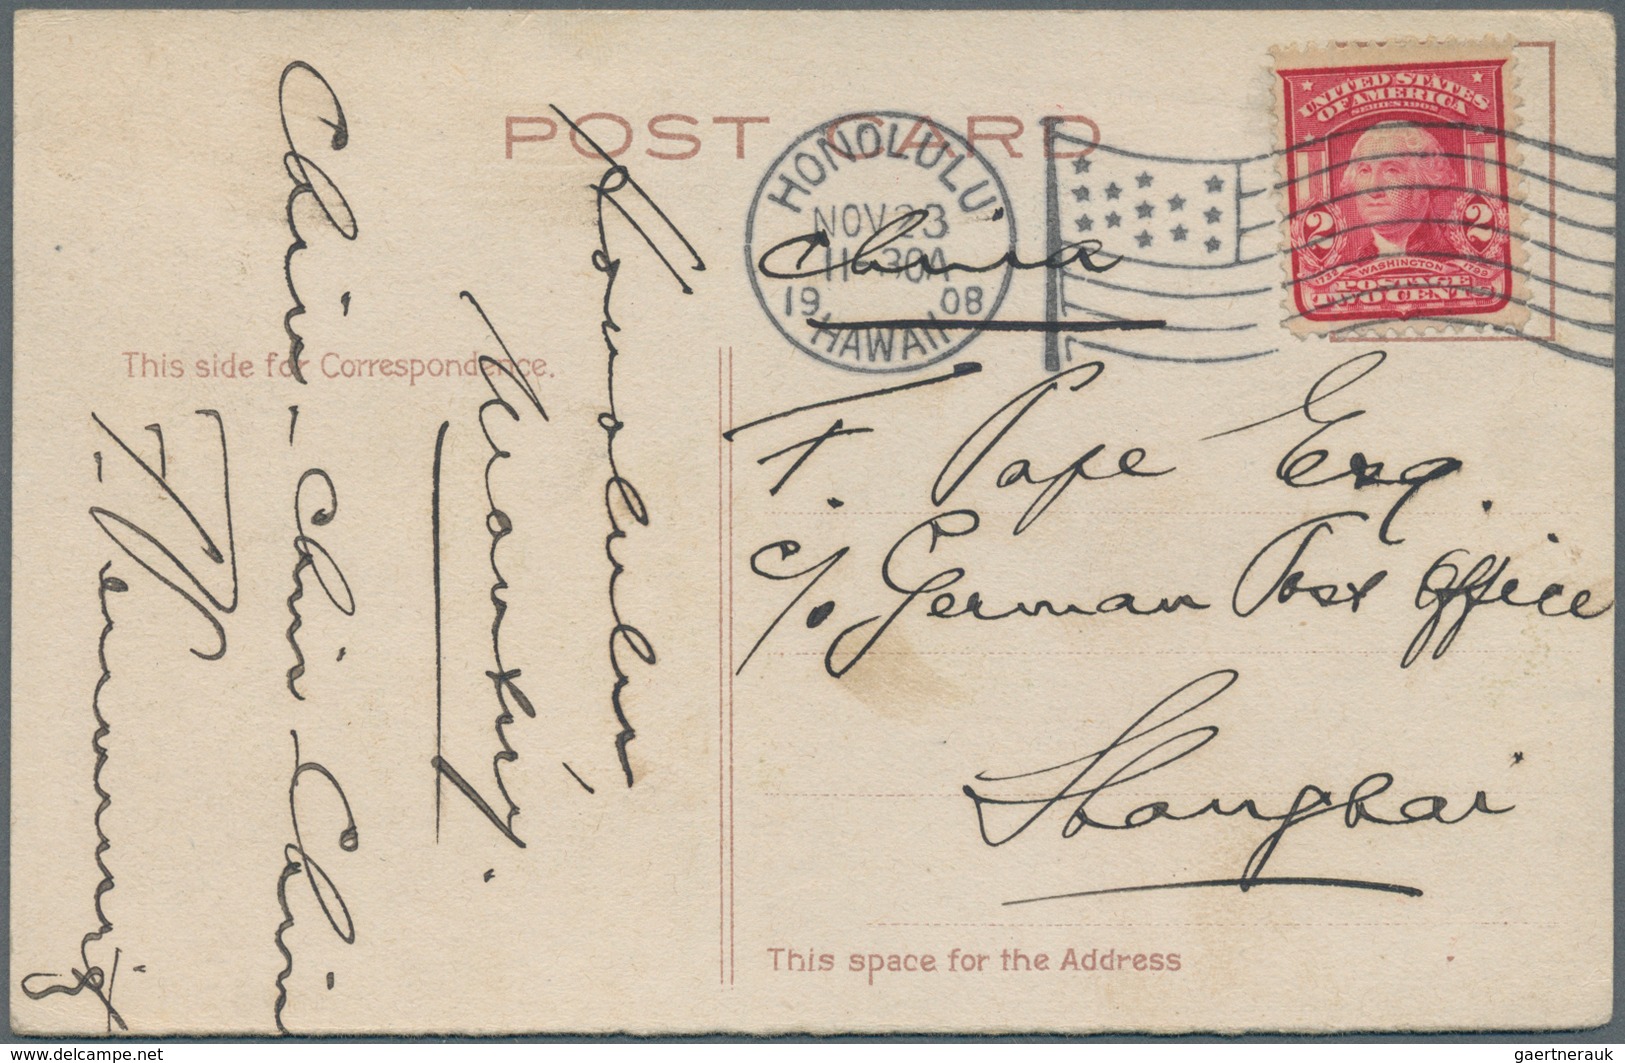 POST CARD
HONOLULU
NOV 23
11-30A
1908
HAWAII
UNITED STATES
OF AMERICA
SERIES 1902
2 2
1732 WASHINGTON 1799
POSTAGE
TWO CENTS
China
This side for Correspondence.
F. Pape Esq.
c/o German Post Office
Shanghai
This space for the Address
Honolulu,
Monday.
Chin-Chin Chin
www.delcampe.net
gaertnerauk